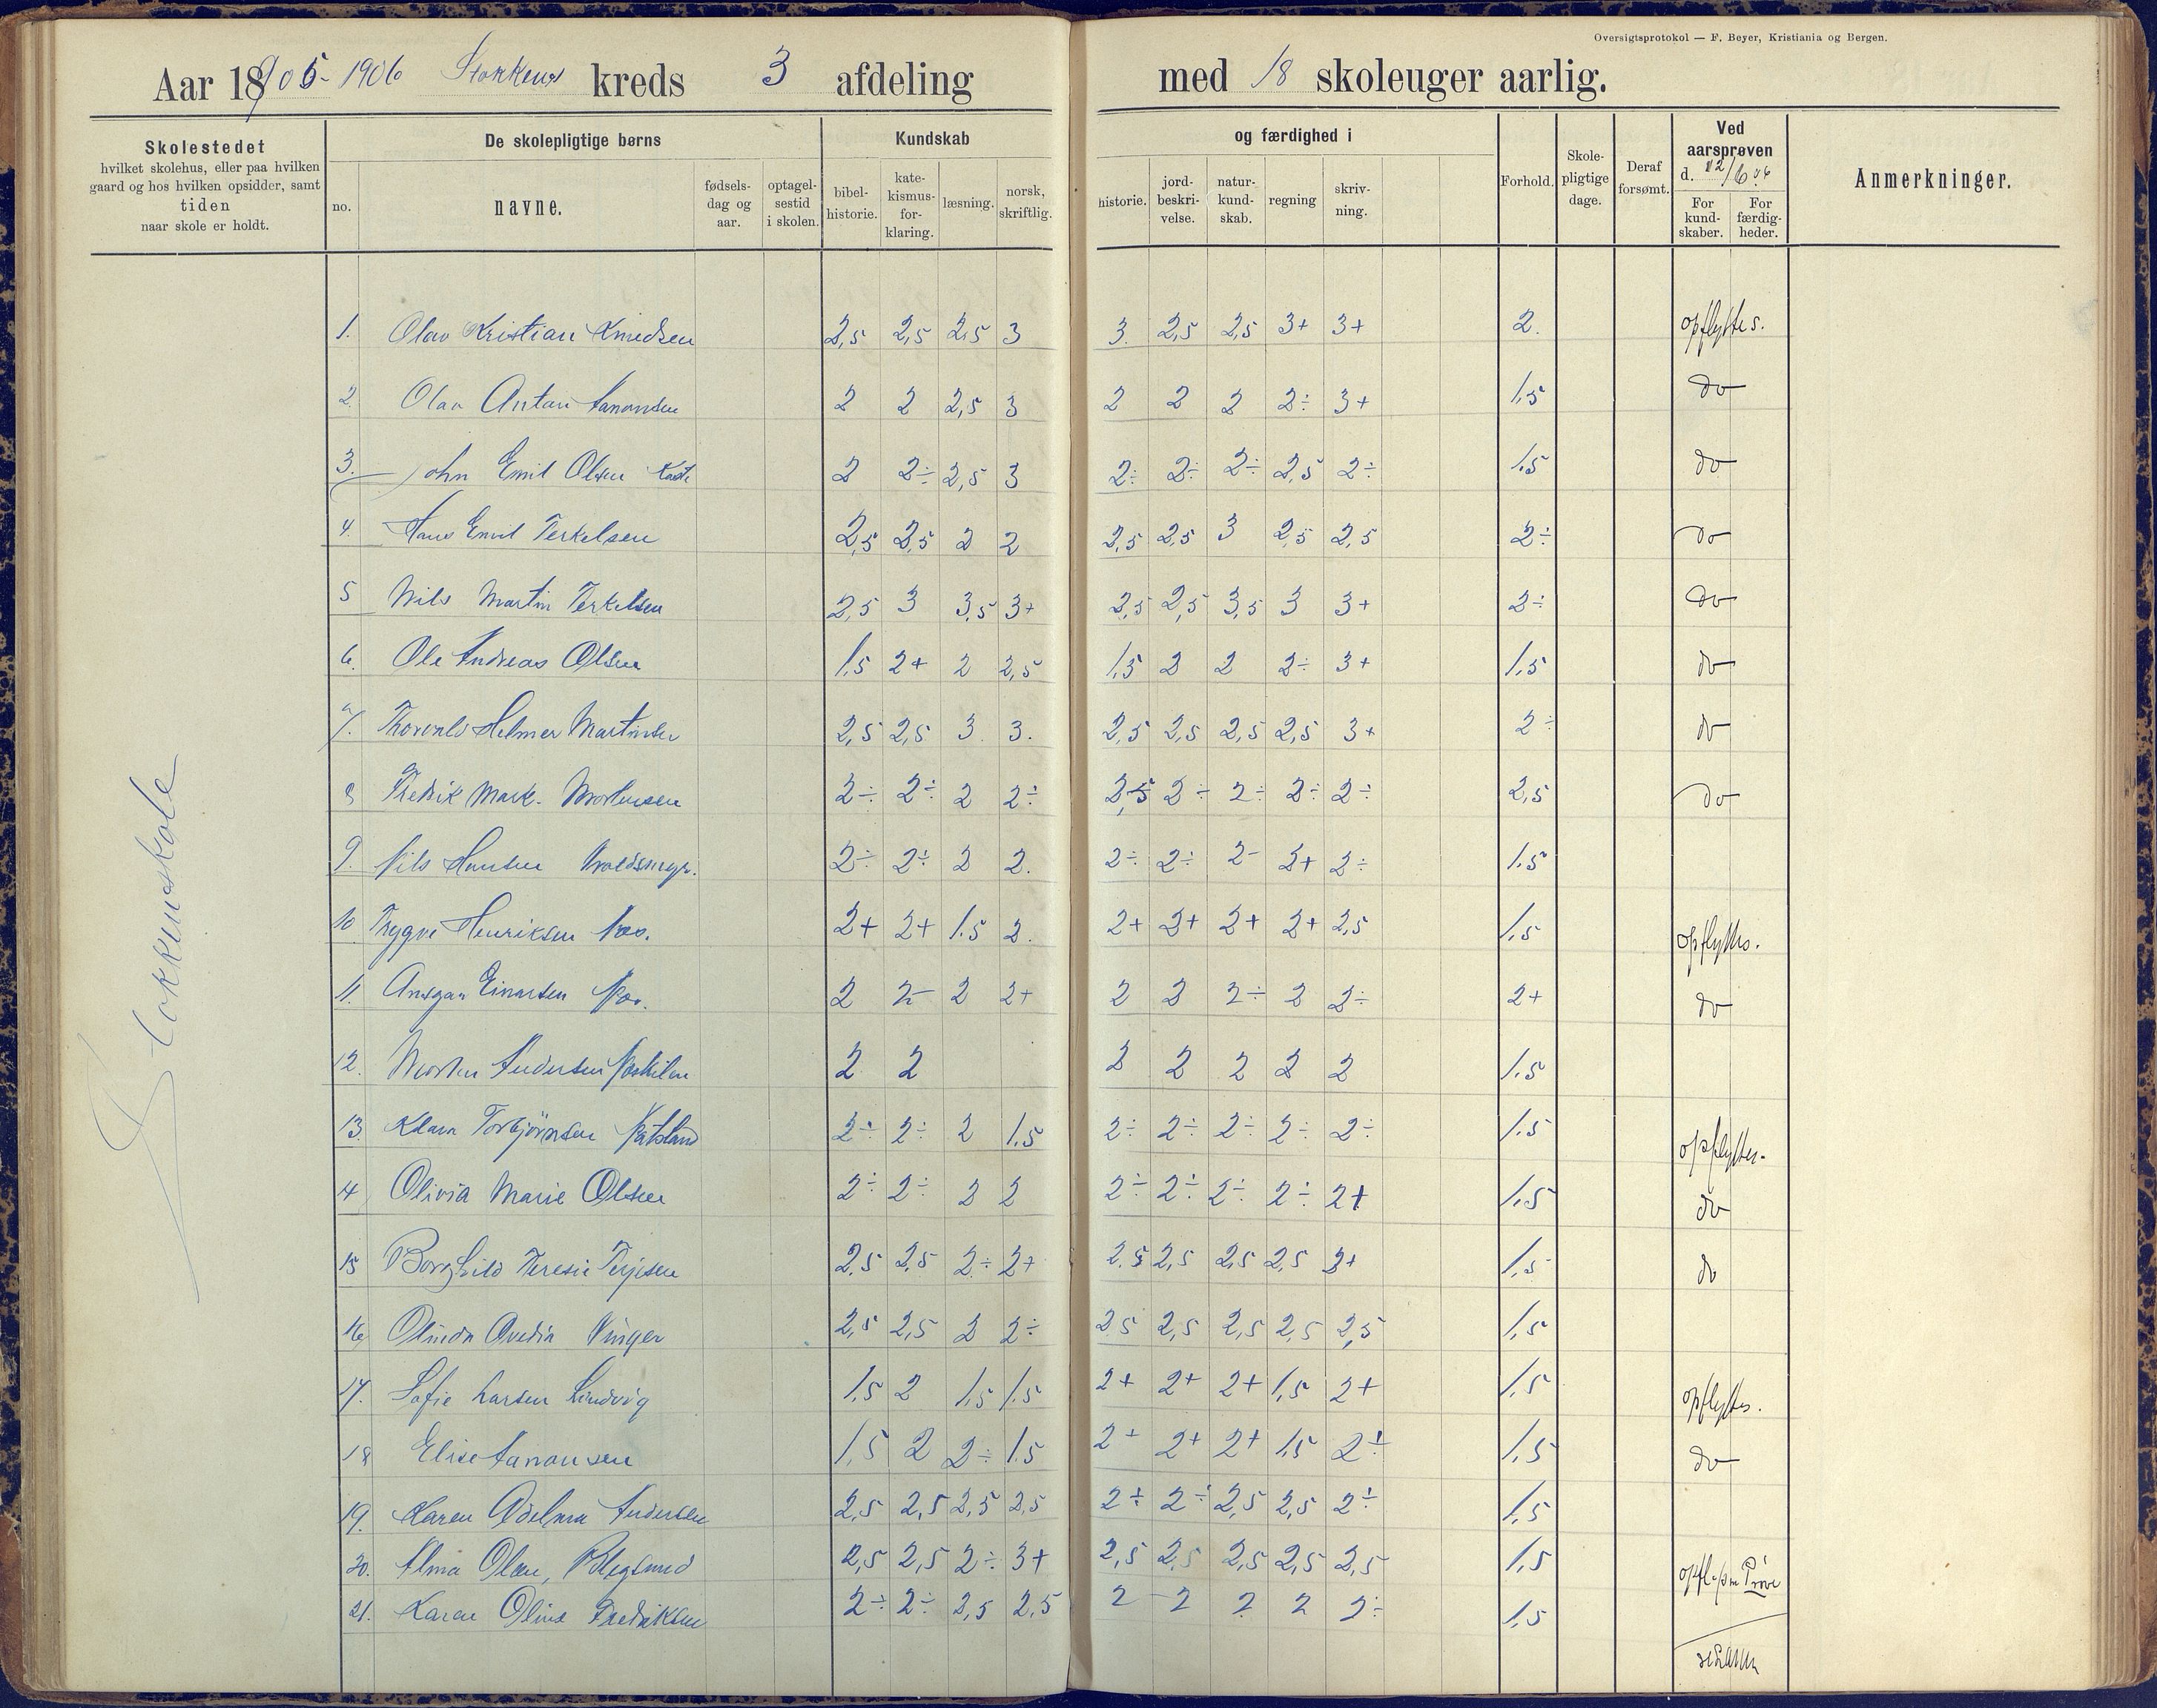 Oversigtsprotokol — F. Beyer, Kristiania og Bergen.
Aar 1905-1906 Stokken kreds 3 afdeling med 18 skoleuger aarlig.
Skolestedet
hvilket skolehus, eller paa hvilken
gaard og hos hvilken opsidder, samt
tiden
naar skole er holdt.
De skolepligtige børns
no.
navne.
fødsels-
dag og
aar.
optagel-
sestid
i skolen.
Kundskab
bibel-
historie.
kate-
kismus-
for-
klaring.
læsning.
norsk,
skriftlig.
og færdighed i
historie.
jord-
beskri-
velse.
natur-
kund-
skab.
regning
skriv-
ning.
Forhold.
Skole-
pligtige
dage.
Deraf
forsømt.
Ved
aarsprøven
d. 12/6 06
For
kund-
skaber.
For
færdig-
heder.
Anmerkninger.
Stokkenskole
1. Olav Kristian Knudsen 2,5 2,5 2,5 3 3. 2,5 2,5 3+ 3+ 2. opflyttes.
2. Olav Anton Aanonsen 2 2 2,5 3 2 2 2 2÷ 3+ 1,5 do
3. John Emil Olsen 2 2÷ 2,5 3 2÷ 2÷ 2÷ 2,5 2÷ 1,5 do
4. Hans Emil Terkelsen 2,5 2,5 2 2 2,5 2,5 3 2,5 2,5 2÷ do
5 Nils Martin Terkelsen 2,5 3 3,5 3+ 2,5 2,5 3,5 3 3+ 2÷ do
6. Ole Andreas Olsen 1,5 2+ 2 2,5 1,5 2 2 2÷ 3+ 1,5 do
7. Thorvald Helmer Martinsen 2,5 2,5 3. 3. 2,5 2,5 2,5 2,5 3+ 2÷ do
8 Fredrik Mark. Mortensen 2÷ 2÷ 2 2÷ 2,5 2÷ 2÷ 2÷ 2÷ 2,5 do
9. Nils Hansen 2÷ 2÷ 2 2. 2÷ 2÷ 2- 2+ 2÷ 1.5
10 Trygve Henriksen Næs. 2+ 2+ 1.5 2. 2+ 2+ 2+ 2+ 2,5 1,5 opflyttes.
11. Ansgar Einarsen Næs. 2 2- 2 2+ 2 2 2÷ 2 2÷ 2+ do
12. Morten Andersen 2 2 2 2 2 2 2 1.5
13. Klara Torbjörnsen 2÷ 2÷ 2 1.5 2÷ 2÷ 2÷ 2÷ 2÷ 1.5 opflyttes.
14 Olivia Marie Olsen 2÷ 2÷ 2 2 2÷ 2÷ 2÷ 2÷ 2+ 1.5 do
15 Borghild Teresie Terjesen 2,5 2,5 2÷ 2+ 2,5 2,5 2,5 2,5 3+ 1,5 do
16 Olinda Avedia 2,5 2,5 2 2÷ 2,5 2,5 2,5 2,5 2,5 1,5
17. Sofie Larsen Lindvig 1,5 2 1,5 1.5 2+ 2+ 2+ 1,5 2+ 1,5 opflyttes.
18 Elise Aanonsen 1,5 2 2÷ 1.5 2+ 2+ 2+ 1,5 2÷ 1,5 do
19. Karen Adelma Andersen 2,5 2,5 2,5 2,5 2÷ 2÷ 2,5 2,5 2÷ 1,5
20. Alma Olsen, 2,5 2,5 2÷ 3+ 2,5 2,5 2,5 2,5 2,5 1,5 opfl. paa Prøve
21. Karen Oline Fredriksen 2÷ 2÷ 2,5 2,5 2 2 2 2 2÷ 1,5